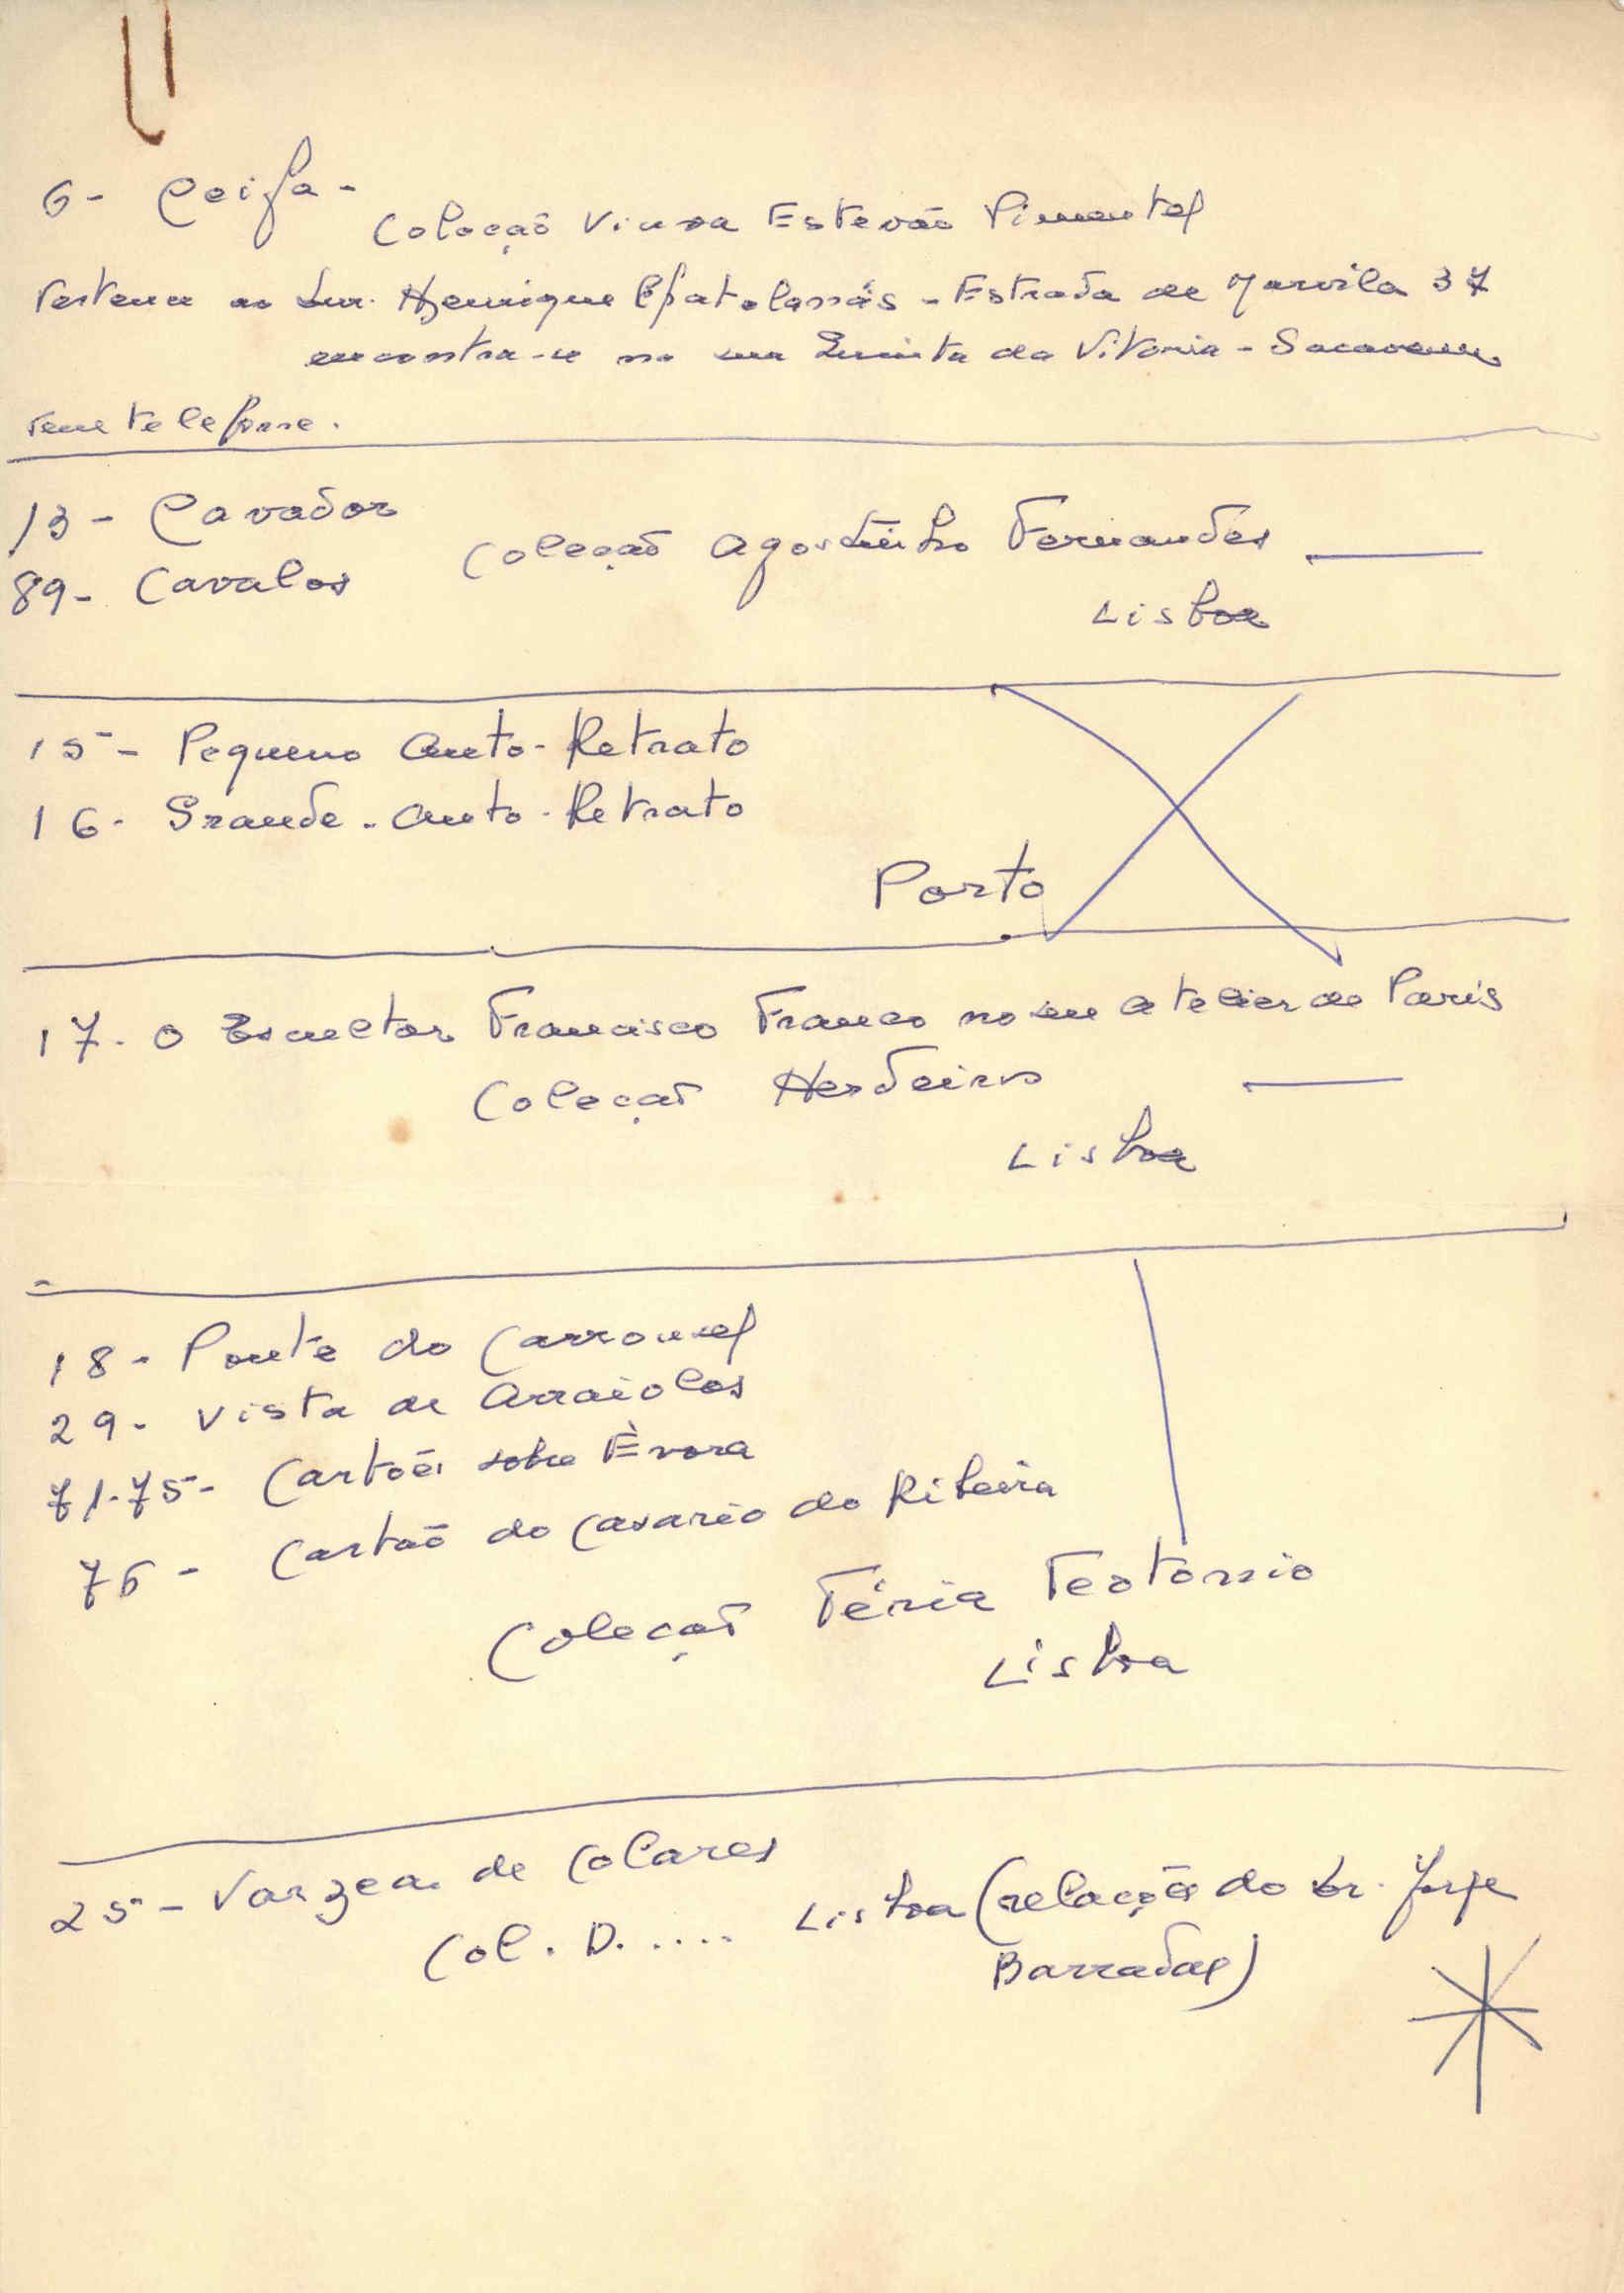 6 - Ceifa -
Coleção Viuva Estevão Pimentel
Pertence ao Snr. Henrique - Estrada de Marvila 37
encontra-se na sua Quinta da Vitoria - Sacavem
tem telefone.
13 - Cavador
Coleção Agostinho Fernandes
89 - Cavalos
Lisboa
15 - Pequeno Auto-Retrato
16 - Grande - Auto-Retrato
Porto
17 - O Escultor Francisco Franco no seu atelier de Paris
Coleção Herdeiros
Lisboa
18 - Ponte do Carrousel
29 - Vista de Arraiolos
71-75 - Cartões sobre Èvora
76 - Cartão do Casario da Ribeira
Coleção Féria Teotonio
Lisboa
25 - Varzea de Colares
Col. D. .... Lisboa (relações do Sr. Jorge
Barradas)